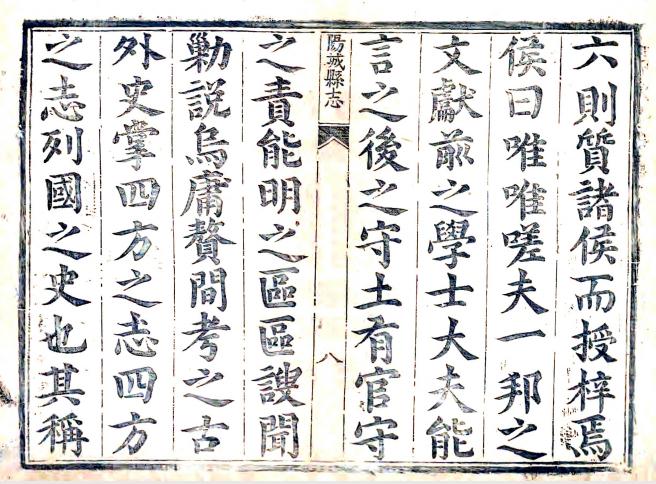 六則質諸侯而授梓焉
侯曰唯唯嗟夫一邦之
文獻前之學士大夫能
言之後之守土有官守
陽城縣志
八
之責能明之區區謏聞
勦説烏庸贅間考之古
外史掌四方之志四方
之志列國之史也其稱